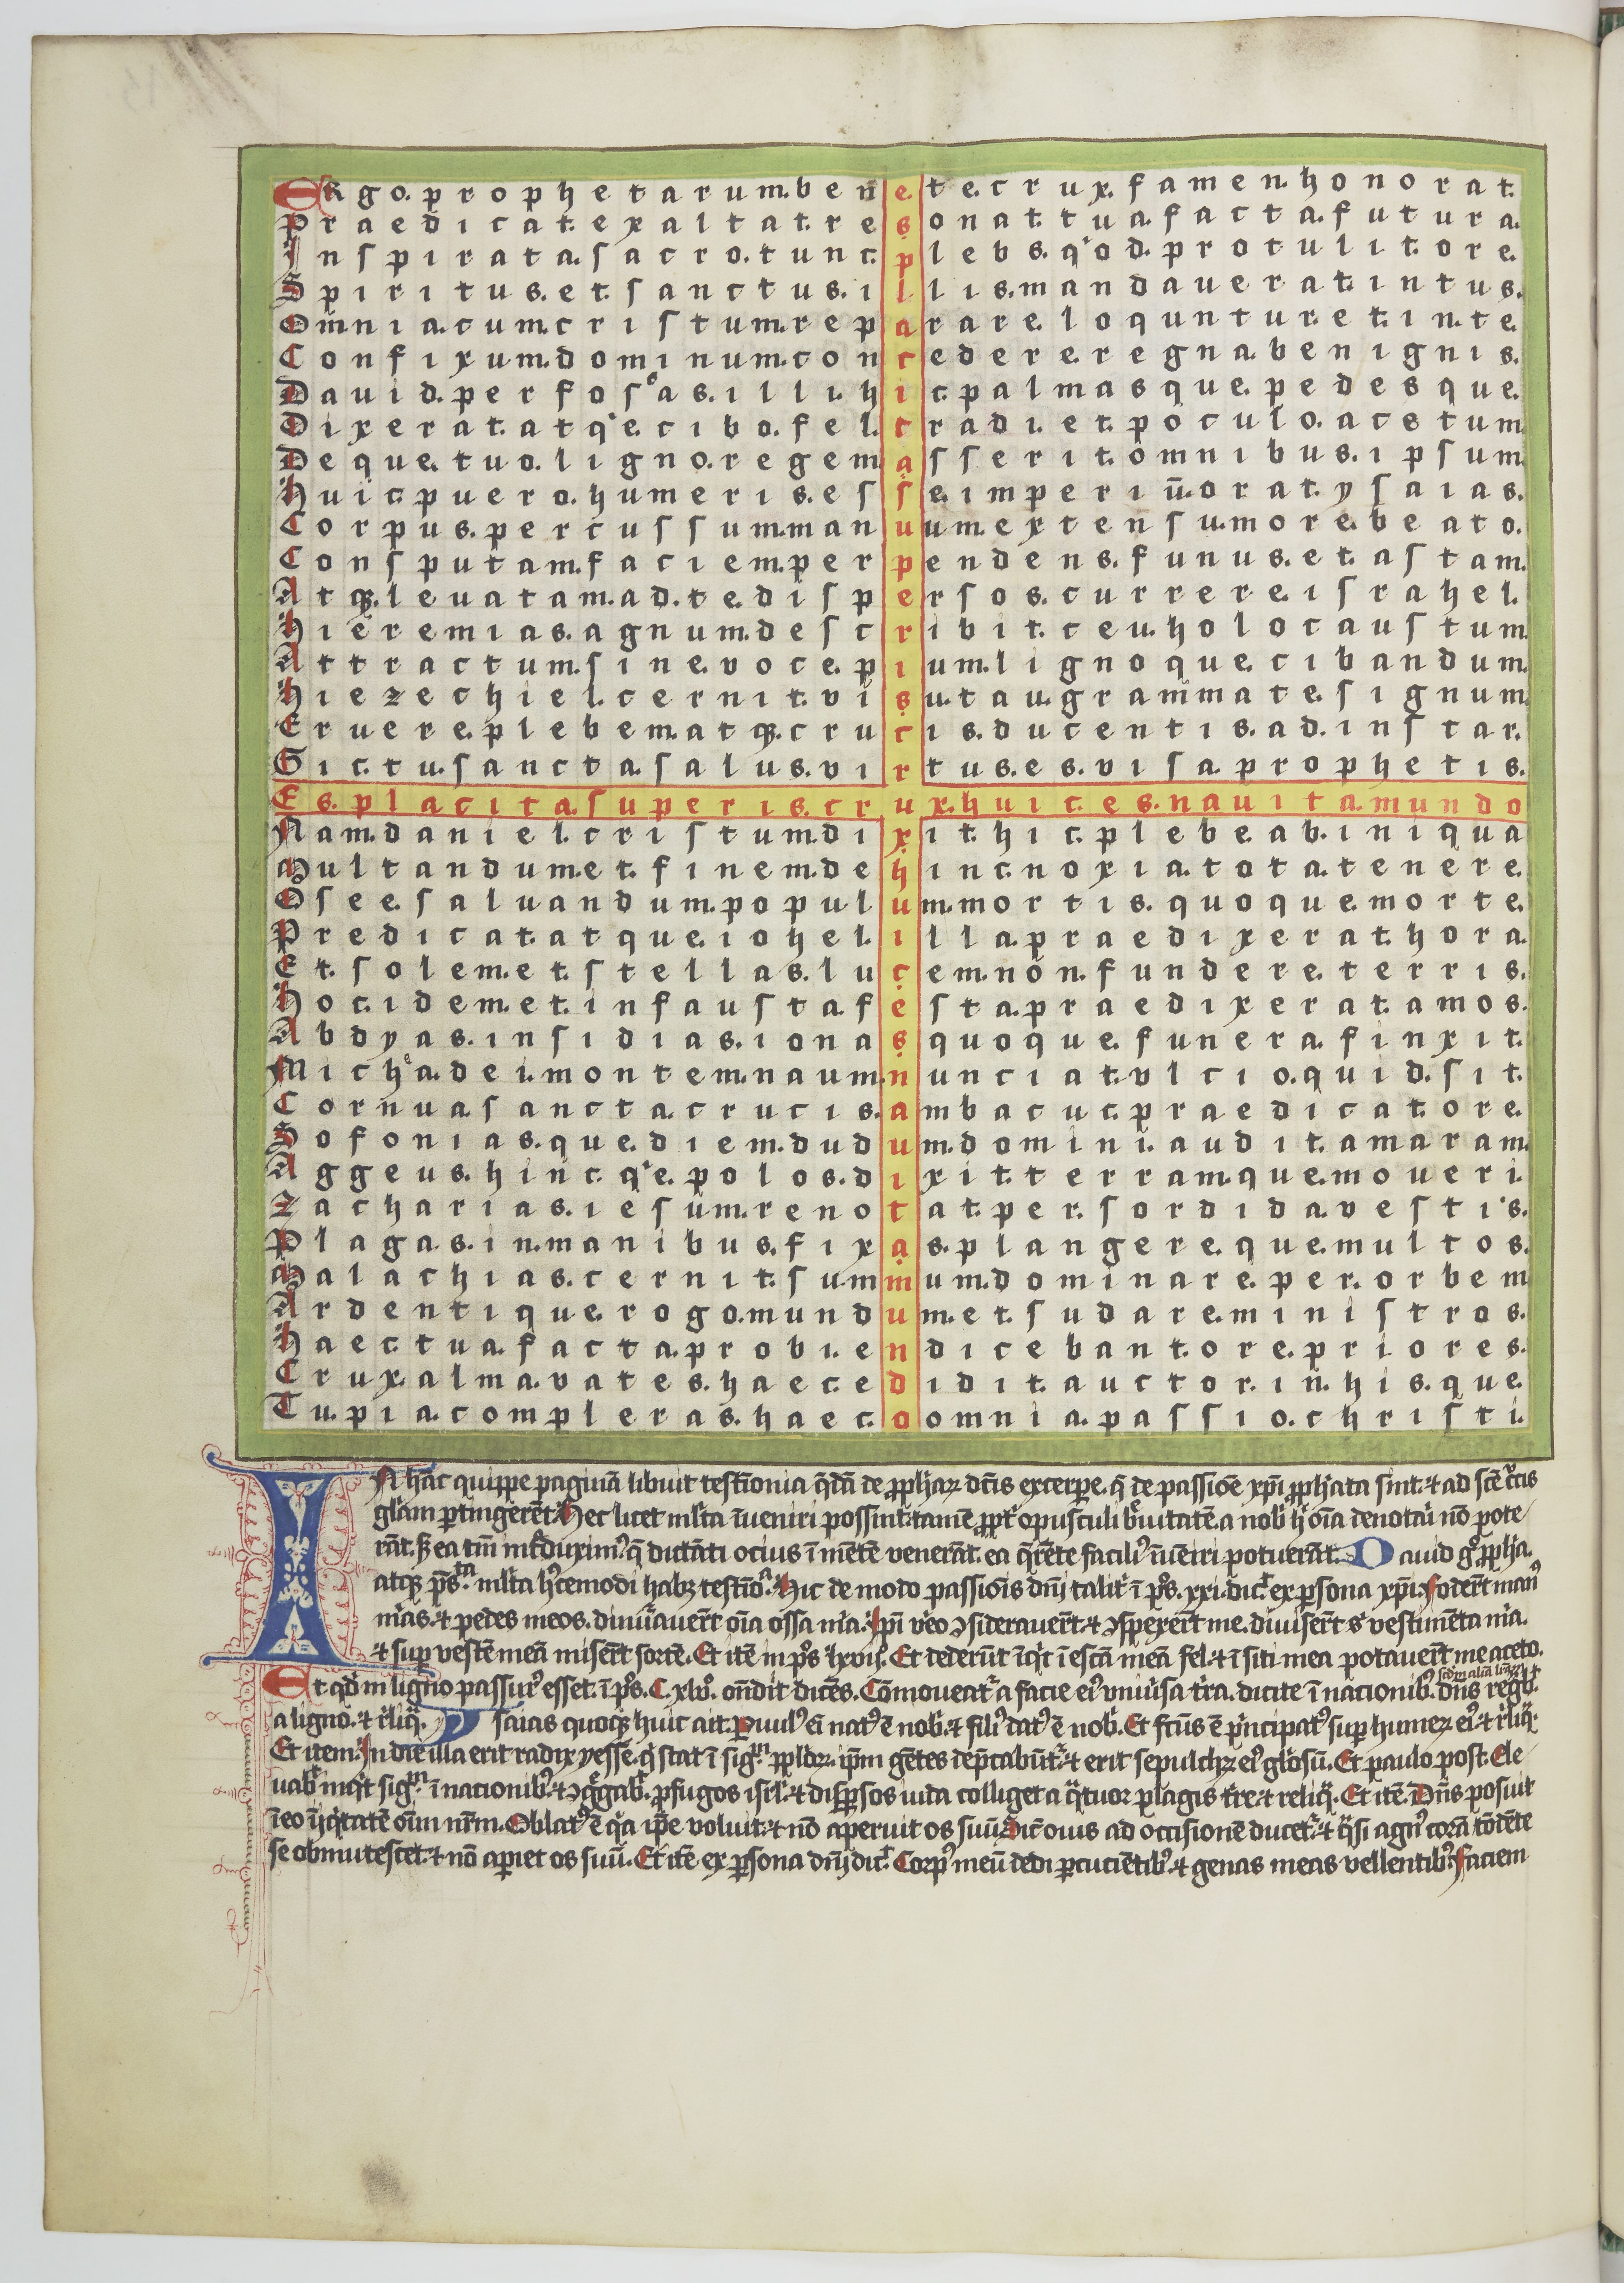 ORgo. prophetarum. bene. te. crux. famen. honorat.
Praedicat. exaltat. resonat. tua. facta. futura.
Inspirata. sacro. tunc. plebs. q'od. protulit. ore.
Spiritus. et. sanctus. illis. mandauerat. intus.
Omnia. cum. cristum. reparare. loquntur. et. in. te.
Confixum. dominum. concedere. regna. benignis.
Dauid. perfosoas. illi. hic. palmasque. pedesque.
Dixerat. atq'e. cibo. fel. tradi. et. poculo. acetum.
Deque. tuo. ligno. regem. asserit. omnibus. ipsum.
Huic. puero. humeris. esse. imperiū. orat. ysaias.
Corpus. percussum. manuum. extensum. ore. beato.
Consputam. faciem. perpendens. funus. et. astam.
Atqꝫ. leuatam. ad. te. dispersos. currere. israhel.
Hieremias. agnum. describit. ceu. holocaustum.
Attractum. sine. voce. pium. lignoque. cibandum.
Hiezechiel. cernit. visu. tau. grammate. signum.
Eruere. plebem. atqꝫ. crucis. ducentis. ad. instar.
Sic. tu. sancta. salus. virtus. es. visa. prophetis.
Es. placita. superis. crux. huic. es. nauita. mundo
Nam. daniel. cristum. dixit. hic. plebe. ab. iniqua
Multandum. et. finem. dehinc. noxia. tota. tenere.
Osee. saluandum. populum. mortis. quoque. morte.
Predicat. atque. iohel. illa. praedixerat. hora.
Et. solem. et. stellas. lucem. non. fundere. terris.
Hoc. idem. et. infausta. festa. praedixerat. amos.
Abdyas. insidias. iona. quoque. funera. finxit.
Micha. dei. montem. naum. nunciat. vlcio. quid. sit.
Cornua. sancta. crucis. ambacuc. praedicat. ore.
Sofonias. que. diem. dudum. domini. audit. amaram.
Aggeus. hinc. q'e. polos. dixit. terramque. moueri.
Zacharias. iesum. renotat. per. sordida. vestis.
Plagas. in. manibus. fixas. plangereque. multos.
Malachias. cernit. summum. dominare. per. orbem
Ardentique. rogo. mundum. et. sudare. ministros.
Haec. tua. facta. probi. en. dicebant. ore. priores.
Crux. alma. vates. haec. edidit. auctor. in. hisque.
Tu. pia. compleras. haec. omnia. passio. christi.
IN hāc quippe paginā libuit testīonia q̄dā de ꝓph̄aꝝ dcīs excerpe. q̄ de passiōe xp̄i ꝓph̄ata sint. ⁊ ad scē cͬcis
gl̄iam ꝑtingerēt. Hec licet ml̄ta īueniri possint. tamē ꝓpt̄ opusculi bͤuitatē. a nob̄ h̄ oīa denotai nō pote
rāt. Sꝫ ea tm̄ mͭduximꝰ. q̄ dictāti ocius ī mētē venerāt. ea q̄rēte faciliꝰ īueniri potuerāt. Dauid gͦ ꝓph̄a.
atqꝫ p̄s.ᵗᵃ ml̄ta hͨcemodi habꝫ testīo.ᵃ Hic de modo passionis dn̄i talit̄ ī pͦs. xxi. dic̄ ex ꝑsona xp̄i. Foder̄t manꝰ
mͣas. ⁊ pedes meos. dinūauer̄t oīa ossa mͣa. Ipī vͦeo ꝯsiderauer̄t. ⁊ ꝯspexer̄t me. diuiser̄t sͥ vestimēta mͣa.
⁊ suꝑ vestē meā miser̄t sortē. Et itē in pͦs lxviijͦ. Et dederūt īq̇t ī escā meā fel. ⁊ ī siti mea potauer̄t me aceto.
Et qd̄ in ligno passurꝰ esset. ī pͦs. C. xlvͦ. oñdit dicēs. Cōmoueatͬ a facie eiꝰ vniūsa t̄ra. dicite ī nacionibꝫ. dn̄s regͭ.
a ligno. ⁊ rͥliq̄. ysaias quoqꝫ huic ait. Puulꝰ ēī natꝰ ē nob̄. ⁊ filiꝰ datꝰ ē nob̄. Et fc̄us ē pͥncipatꝰ suꝑ humeꝝ eiꝰ. ⁊ rͥliq̄.
Et item. In die illa erit radix yesse. q̄ stat ī sig.ᵐ ppl̄oꝝ. ip̄m gētes dep̄cabūtͬ. ⁊ erit sepulchꝝ eiꝰ glo̅sū. Et paulo post. Ele
uabͭ inqͭ sig.ᵐ ī nacionibꝰ. ⁊ ꝯgͤgabͭ. ꝓfugos isrl̄. ⁊ disꝑsos iuda colliget a qͣtuor plagis tr̄e. ⁊ reliq̄. Et itē. Dn̄s posuit
ī eo īiq̇tatē oīm nr̄m. Oblatꝰ ē qͥa ip̄e voluit. ⁊ nō aperuit os suū. Sic̄ ouis ad occisionē ducetͬ. ⁊ qͣsi agnꝰ corā tōdēte
se obmutescet. ⁊ nō aꝑiet os suū. Et itē ex ꝑsona dn̄i dic̄ͭ. Corpꝰ meū dedi ꝑcuciētibꝰ. ⁊ genas meas vellentibꝰ. Faciem